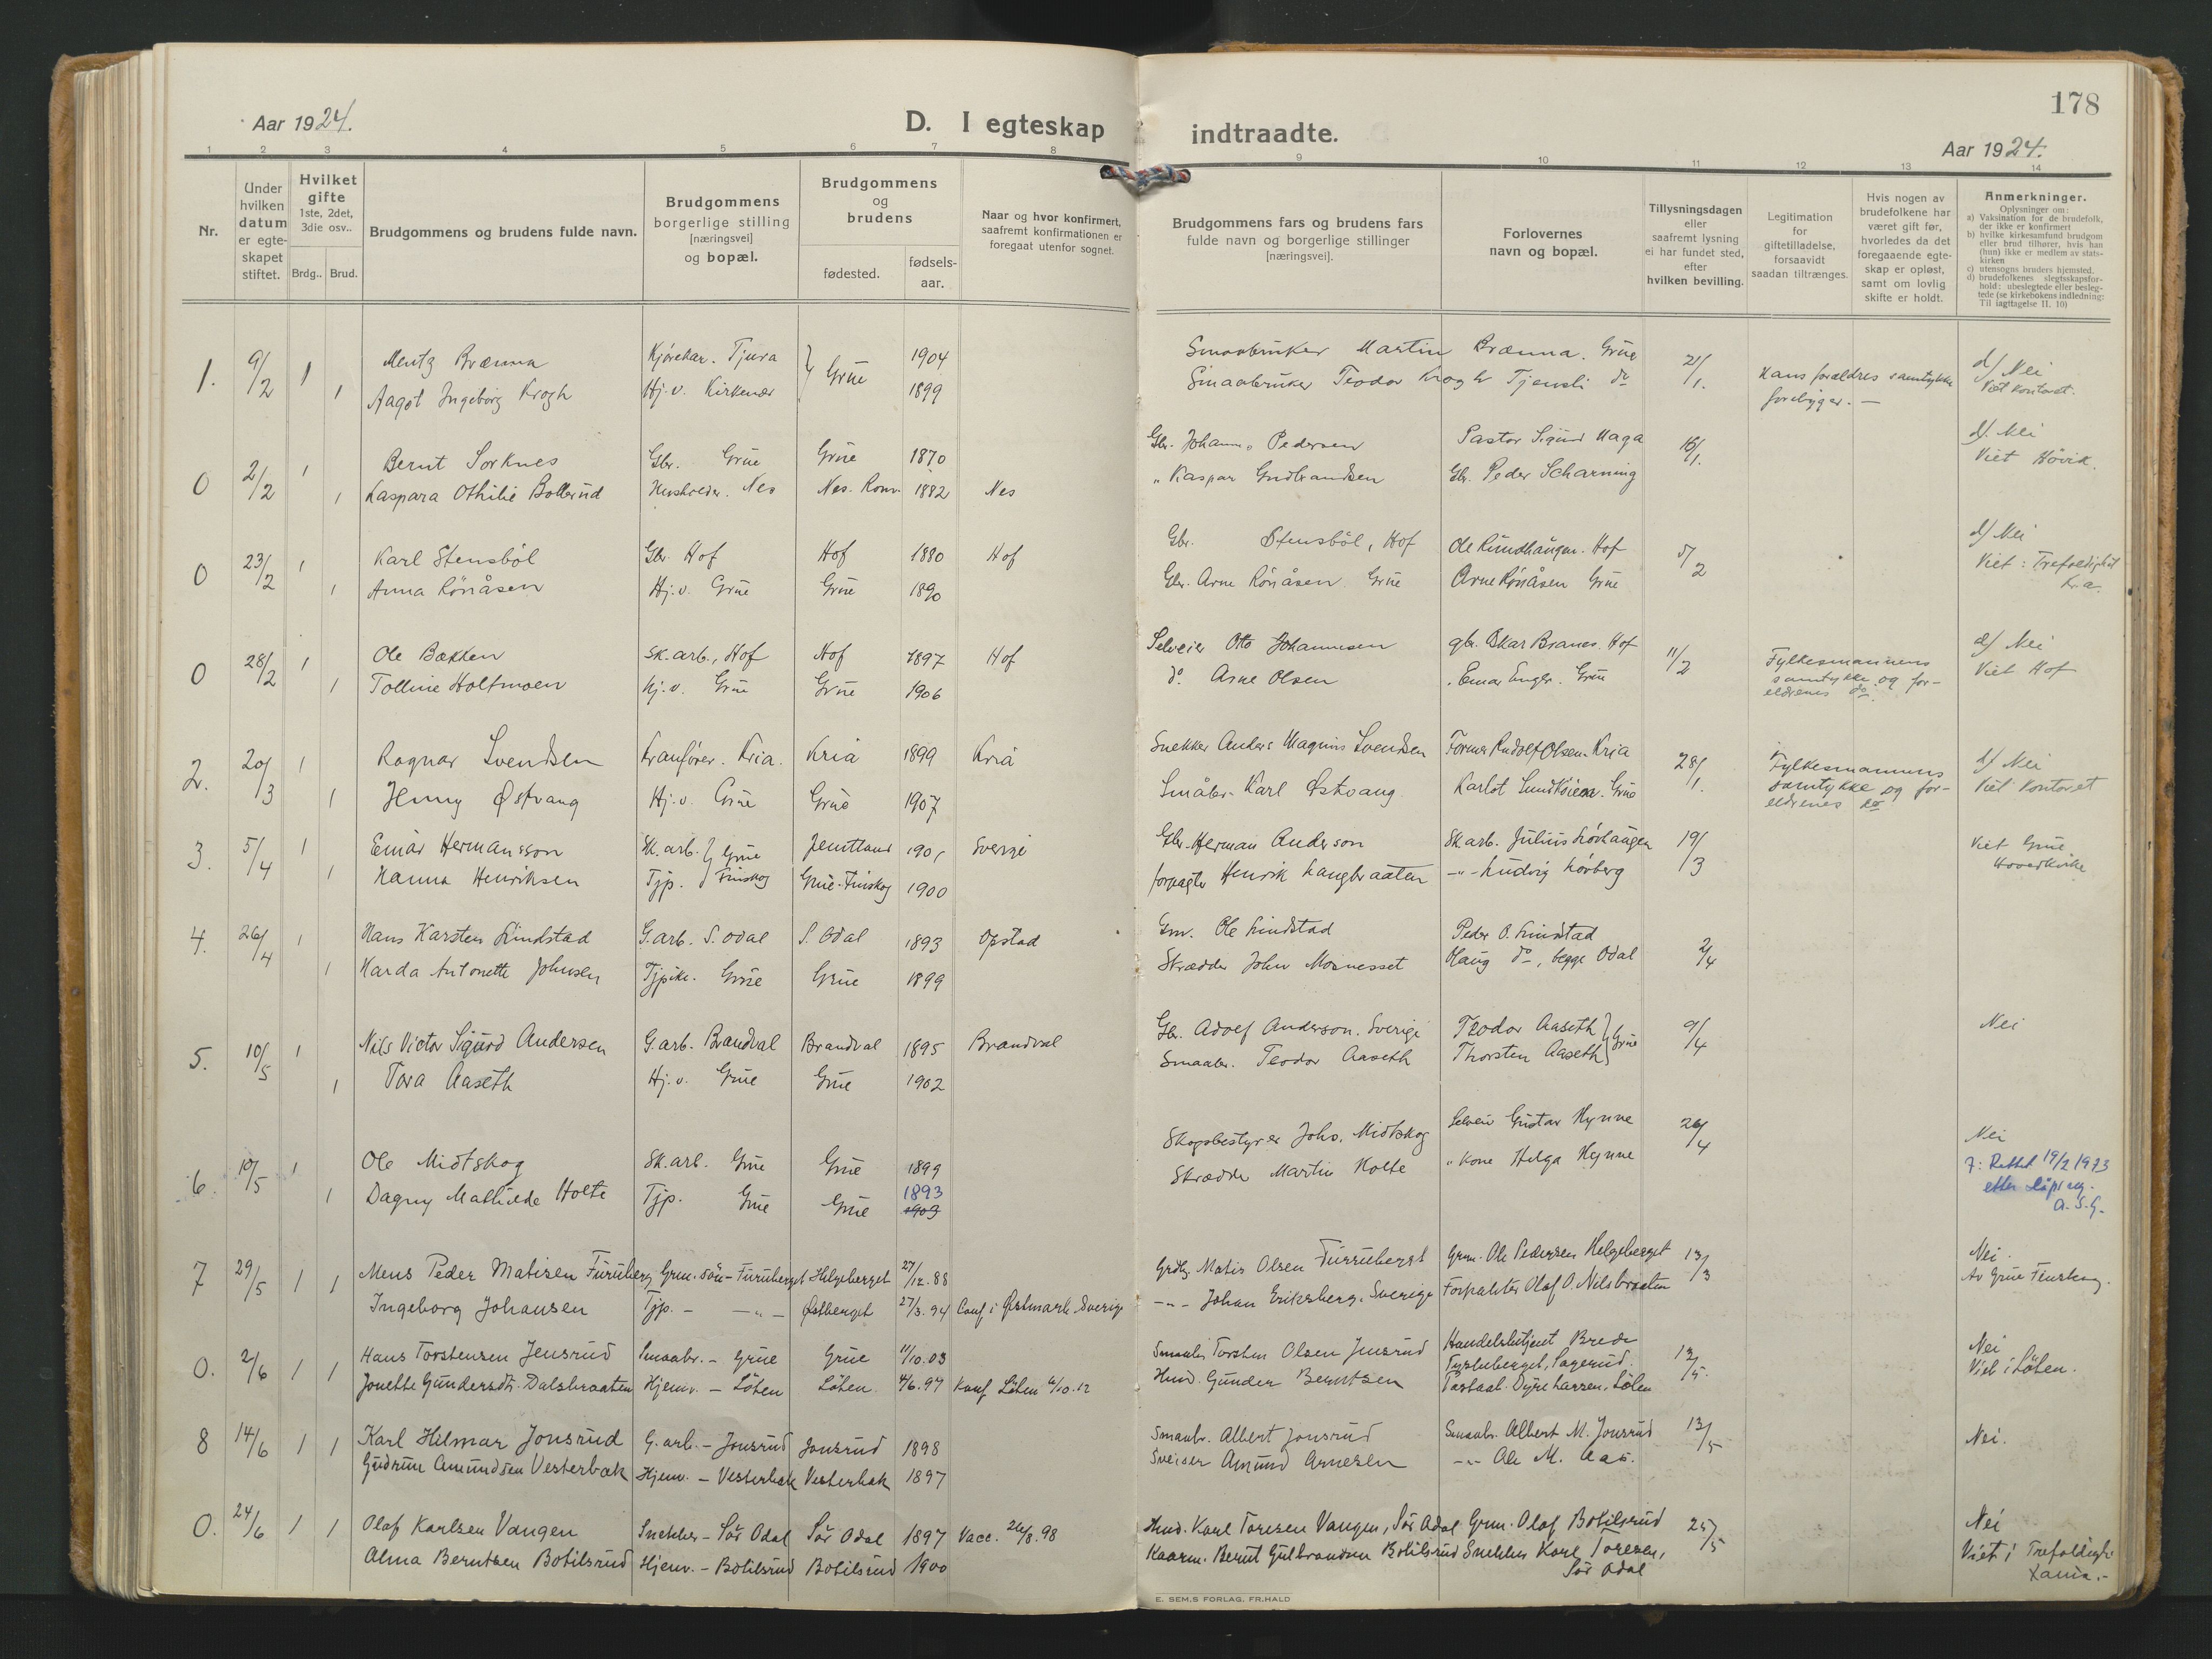 Aar 1924.
D. I egteskap indtraadte.
178
Aar 1924.
1 2 3 4 5 6 7 8 9 10 11 12 13 14
Nr.
Under hvilken datum er egteskapet stiftet.
Hvilket gifte 1ste, 2det, 3die osv..
Brdg.. Brud.
Brudgommens og brudens fulde navn.
Brudgommens borgerlige stilling [næringsvei] og bopæl.
Brudgommens og brudens
fødested.
fødsels-aar.
Naar og hvor konfirmert, saafremt konfirmationen er foregaat utenfor sognet.
Brudgommens fars og brudens fars fulde navn og borgerlige stillinger [næringsvei].
Forlovernes navn og bopæl.
Tillysningsdagen eller saafremt lysning ei har fundet sted, efter hvilken bevilling.
Legitimation for giftetilladelse, forsaavidt saadan tiltrænges.
Hvis nogen av brudefolkene har været gift før, hvorledes da det foregaaende egteskap er opløst, samt om lovlig skifte er holdt.
Anmerkninger.
Oplysninger om:
a) Vaksination for de brudefolk, der ikke er konfirmert
b) hvilke kirkesamfund brudgom eller brud tilhører, hvis han (hun) ikke er medlem av statskirken
c) utensogns bruders hjemsted.
d) brudefolkenes slegtsskapsforhold: ubeslegtede eller beslegtede (se kirkebokens indledning: Til iagttagelse II. 10)
1. 9/2 1 Mentz Brænna Kjørekar. Tjura } Grue 1904 Smaabruker Martin Brænna. Grue 21/1. Hans forældres samtykke d/ Nei
1 Aagot Ingeborg Krogh Hj.v. Kirkenær 1899 Smaabruker Teodor Krogh Tjensli do forebyger. — Viet kontoret.
0 2/2 1 Bernt Sorknes Gbr. Grue Grue 1870 Gbr. Johann. Pedersen Pastor Sigurd Haga 16/1. d/. Nei
1 Kaspara Othilie Bollerud Hushold. Nes Nes. Rom. 1882 Nes " Kaspar Gudbrandsen Gbr. Peder Scharning Viet Hövik.
0 23/2 1 Karl Stensböl Gbr. Hof Hof 1880 Hof Gbr. Stensböl, Hof Ole Rundhaugen. Hof 5/2 d/ Nei
1 Anna Rönåsen Hj.v. Grue Grue 1890 Gbr. Arne Rönåsen Grue Arne Rönåsen Grue Viet: Trefoldighet Kra.
0 28/2 1 Ole Bakken Sk.arb., Hof Hof 1897 Hof Selveier Otto Johannesen gbr. Oskar Branes. Hof 11/2 Fylkesmannens d/ Nei
1 Tolline Holtmoen Hj.v. Grue Grue 1906 do Arne Olsen " Einar Enger. Grue samtykke og for- Viet Hof
eldrenes do.
2. 20/3 1 Ragnar Svendsen Kranfører. Kria. Kria 1899 Kria Snekker Anders Magnus Svendsen Former Rudolf Olsen. Kria 28/1. Fylkesmannens d/ Nei
1 Jenny Østvang Hj.v. Grue Grue 1907 Småbr. Karl Østvang Karlot Sundkøien. Grue samtykke og for- Viet Kontoret
eldrenes do
3. 5/4 1 Einar Hermansson Sk.arb. } Grue Jemtland 1901 Sverige Gbr. Herman Anderson Sk.arb. Julius Lövhaugen 19/3 Viet Grue
1 Hanna Henriksen Tjp. } Finskog Grue-Finskog 1900 forpagter Henrik Langbraaten -"- Ludvig Lövberg Hovedkirke
4. 26/4 1 Hans Karsten Lindstad G.arb. S. Odal S. Odal 1893 Opstad Gm. Ole Lindstad Peder O. Lindstad 2/4
1 Harda Antonette Johnsen Tjpike. Grue Grue 1899 Skrædder John Mosnesset Haug do, begge Odal
5. 10/5 1 Nils Victor Sigurd Andersen G.arb. Brandval Brandval 1895 Brandval Gb. Adolf Anderson. Sverige Teodor Aaseth } Grue 9/4 Nei
1 Tora Aaseth Hj.v. Grue Grue 1902 Smaabr. Teodor Aaseth Thorsten Aaseth
6. 10/5 1 Ole Midtskog Sk.arb. Grue Grue 1899 Skogsbestyrer Johs. Midtskog Selveier Gustav Hynne 26/4 Nei
1 Dagny Mathilde Holte Tjp. Grue Grue 1893 1903 Skrædder Martin Holte " Kone Helga Hynne 7: Rettet 19/2 1973
A.S.G.
7 29/5 1 1 Mens Peder Matisen Furuberg Grm. sön - Furuberget Helgeberget 27/12.88 Grdbr. Matis Olsen Furuberget Grm. Ole Pedersen Helgeberget 13/3 Nei.
Ingeborg Johansen Tjp. - -"- Østberget 27/3.94 Conf. i Östmark Sverige -"- Johan Eriksberg. Sverige Forpakter Olaf O. Nilsbraaten Av Grue Finskog.
0. 2/6 1 1 Hans Torstensen Jensrud Smaabr. - Grue Grue 11/10.03 Smaabr. Torsten Olsen Jensrud Handelsbetjent Brede 12/5. Nei
Jonette Gundersdtr. Dalsbraaten Hjemv. - Löten Löten. 4/6.97 Konf Löten 6/10.12 Husm. Gunder Berntsen Tysketberget, Sagerud. Viet i Löten.
8 14/6 1 1 Karl Hilmar Jonsrud G.arb. - Jonsrud Jonsrud 1898 Smaabr. Albert Jonsrud Smaabr. Albert M. Jonsrud 13/5 Nei.
Gudrun Amundsen Vesterbak Hjemv. - Vesterbak Vesterbak 1897 Sveiser Amund Arnesen -"- Ole M. Aas.
0. 24/6 1 1 Olaf Karlsen Vangen Snekker - Sör Odal Sör Odal 1897 Vacc. 26/8.98 Husm. Karl Toresen Vangen, Sör Odal Grm. Olaf Botilsrud 25/5 Nei
Alma Berntsen Botilsrud Hjemv. - Botilsrud Botilsrud 1900 Kaarm. Bernt Gulbrandsen Botilsrud Snekker Karl Toresen, Viet i Trefoldigh.
Sör Odal Kania.-
E. SEM.S FORLAG, FR.HALD